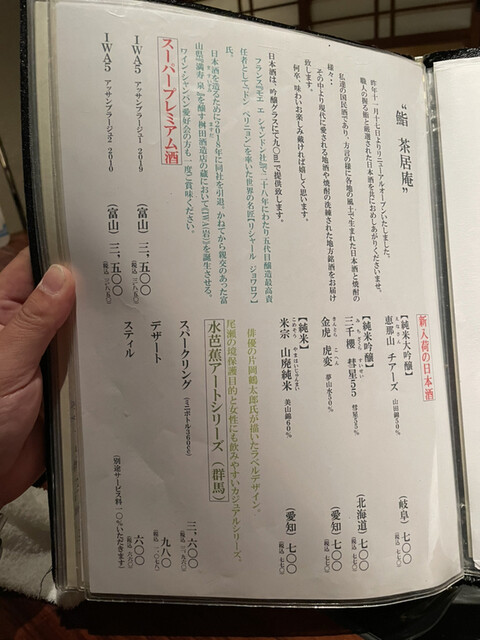 “鮨 茶居庵”
昨年十一月十七日よりリニューアルオープンいたしました。
職人の握る鮨と厳選された日本酒を共におめしあがりくださいませ。
私達の国民酒であり、方言の様に各地の風土で生まれた日本酒と焼酎の
様々・・
その中より現代に愛される地酒や焼酎の洗練された地方銘酒をお届け
致します。
何卒、味わいお楽しみ戴ければ嬉しく思います。
日本酒は、吟醸グラスにて九〇mlで提供致します。
フランス『モエ エ シャンドン社』で二十八年にわたり五代目醸造最高責
任者として『ドン ペリニョン』を率いた世界の名匠【リシャール ジョフロワ】
氏。
日本酒を造るために2018年に同社を引退。かねてから親交のあった富
山県『満寿泉』を醸す桝田酒造店の蔵において《IWA:岩》を誕生させる。
ワイン・シャンパン愛好会の方も一度ご賞味ください。
スーパープレミアム酒
IWA5 アッサンブラージュ1 2019 (富山) 三、五〇〇
(税込 三八五〇)
IWA5 アッサンブラージュ2 2010 (富山) 三、五〇〇
(税込 三八五〇)
新入荷の日本酒
【純米大吟醸】
恵那山 チアーズ 山田錦50% (岐阜) 七〇〇
(税込 七七〇)
【純米吟醸】
三千櫻 彗星55 彗星55% (北海道) 七〇〇
(税込 七七〇)
金虎 虎変 夢山水50% (愛知) 七〇〇
(税込 七七〇)
【純米】
米宗 山廃純米 美山錦60% (愛知) 七〇〇
(税込 七七〇)
俳優の片岡鶴太郎氏が描いたラベルデザイン。
尾瀬の環境保護目的と女性にも飲みやすいカジュアルシリーズ。
水芭蕉アートシリーズ (群馬)
スパークリング (ミニボトル360cc) 三、六〇〇
デザート 九八〇
スティル 六〇〇
(税込 六六〇)
(別途サービス料一〇%いただきます)